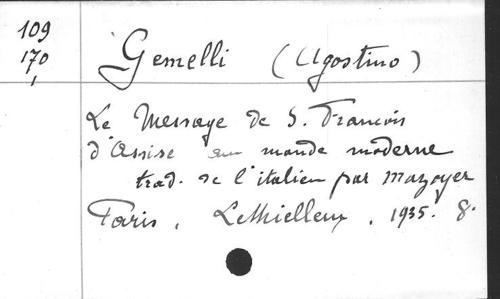 109
170
Gemelli (Agostino)
Le Message de S. François
d'Assise au monde moderne
trad. de l'italien par Mazoyer
Paris, Lethielleux, 1935. 8.